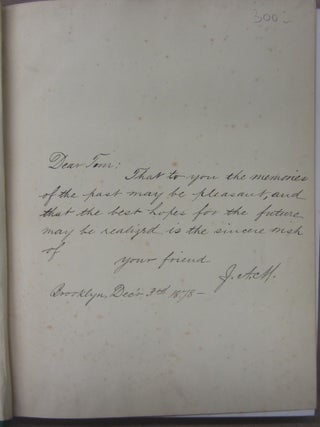 300
Dear Tom:
That to you the memories
of the past may be pleasant, and
that the best hopes for the future
may be realized is the sincere wish
of your friend
J.A.M.
Brooklyn, Dec'r, 3rd 1878-